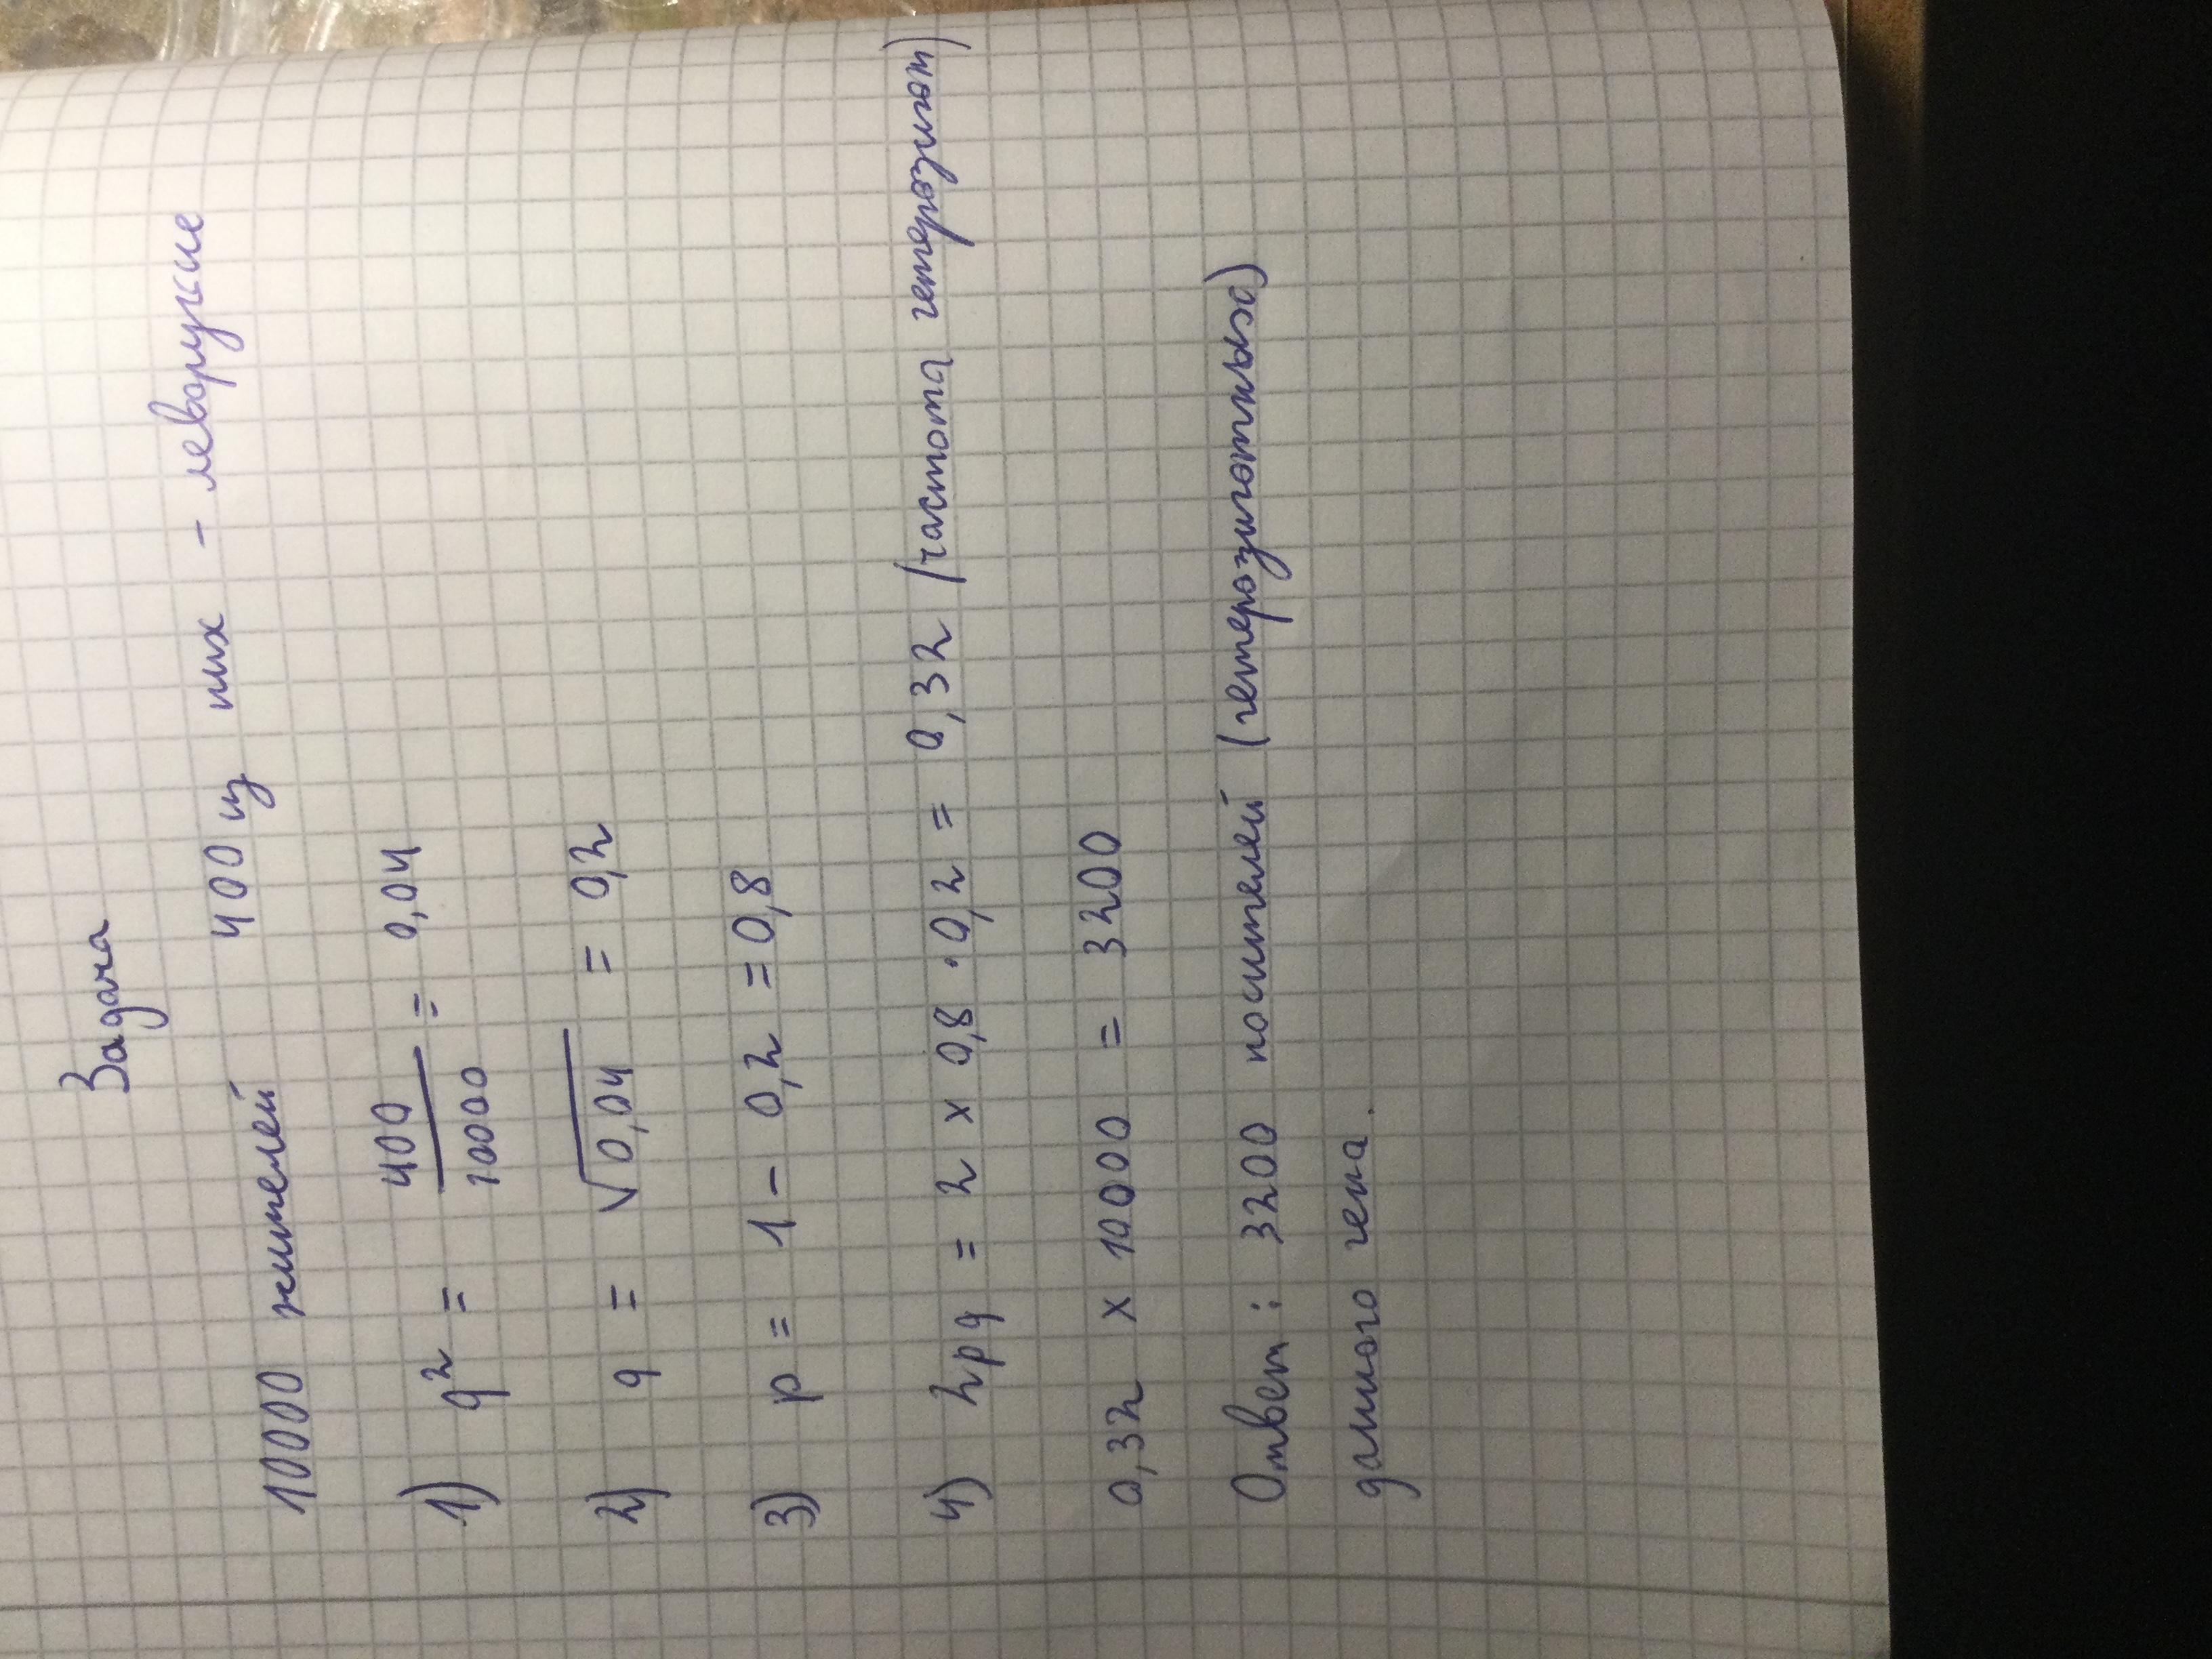 Задача
10000 жителей 400 из них - леворукие
1) q² = 400/10000 = 0,04
2) q = √0,04 = 0,2
3) p = 1 - 0,2 = 0,8
4) 2pq = 2 x 0,8 · 0,2 = 0,32 (частота гетерозигот)
0,32 x 10000 = 3200
Ответ: 3200 носителей (гетерозиготных)
данного гена.